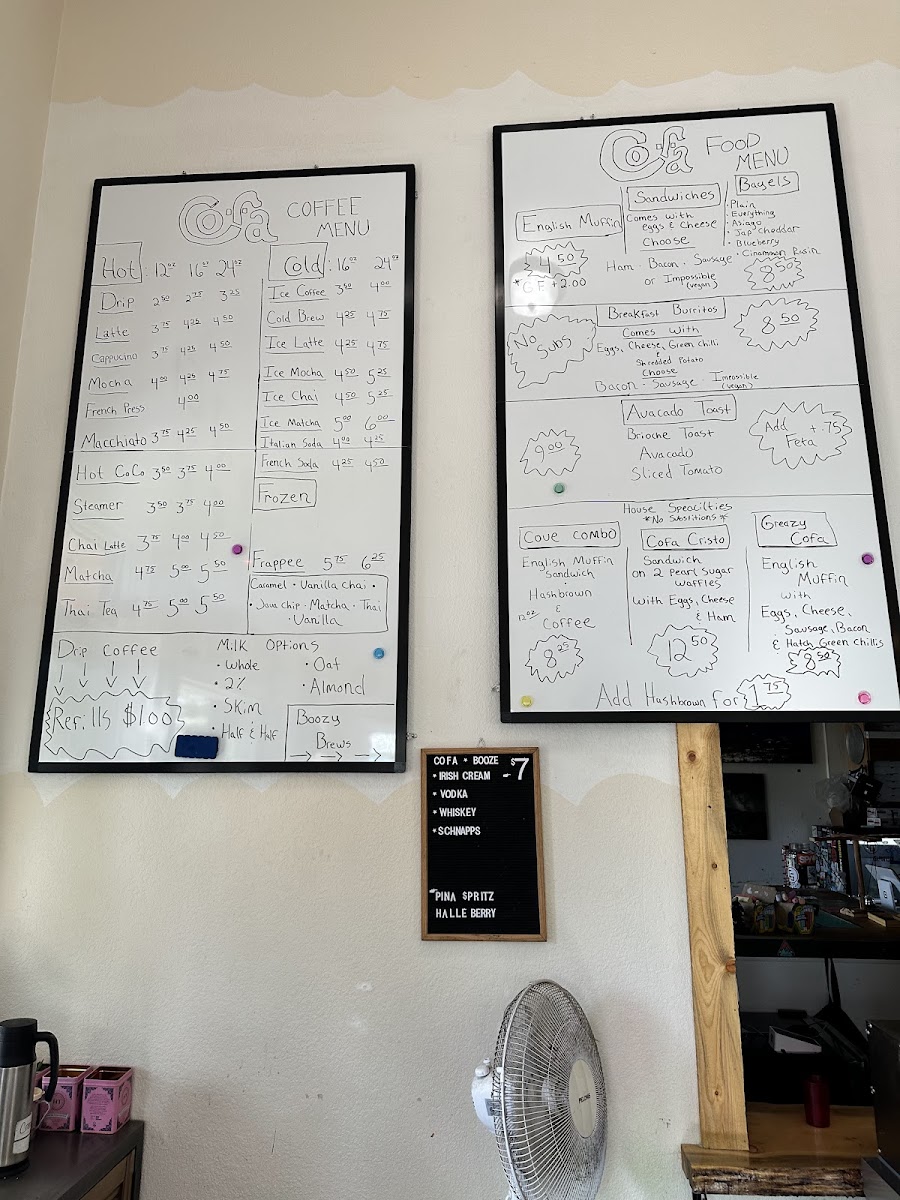 Cofa COFFEE
MENU
Hot: 12oz 16oz 24oz
Drip 2.50 2.75 3.25
Latte 3.75 4.25 4.50
Cappucino 3.75 4.25 4.50
Mocha 4.00 4.25 4.75
French Press 4.00
Macchiato 3.75 4.25 4.50
Hot CoCo 3.50 3.75 4.00
Steamer 3.50 3.75 4.00
Chai Latte 3.75 4.00 4.50
Matcha 4.75 5.00 5.50
Thai Tea 4.75 5.00 5.50
Cold: 16oz 24oz
Ice Coffee 3.50 4.00
Cold Brew 4.25 4.75
Ice Latte 4.25 4.75
Ice Mocha 4.50 5.25
Ice Chai 4.50 5.25
Ice Matcha 5.00 6.00
Italian Soda 4.00 4.25
French Soda 4.25 4.50
Frozen
Frappee 5.75 6.25
Caramel · Vanilla Chai ·
· Java chip · Matcha · Thai
· Vanilla
Drip Coffee
Refills $1.00
Milk Options
· Whole
· 2%
· Skim
· Half & Half
· Oat
· Almond
Boozy
Brews
Cofa FOOD
MENU
English Muffin
4.50
*GF +2.00
Sandwiches
Comes with
eggs & Cheese
Choose
Ham · Bacon · Sausage
or Impossible
(vegan)
Bagels
· Plain
· Everything
· Asiago
· Jap Cheddar
· Blueberry
· Cinammon Raisin
8.50
No
Subs
Breakfast Burritos
Comes With
Eggs, Cheese, Green Chilli
&
Shredded Potato
Choose
Bacon · Sausage · Impossible
(vegan)
8.50
9.00
Avacado Toast
Brioche Toast
Avacado
Sliced Tomato
Add + .75
Feta
House Specilties
*No Substitions*
Cove Combo
English Muffin
Sandwich
Hashbrown
&
12oz Coffee
8.25
Cofa Cristo
Sandwich
on 2 pearl sugar
waffles
with Eggs, Cheese
& Ham
12.50
Greazy
Cofa
English
Muffin
with
Eggs, Cheese,
Sausage, Bacon
& Hatch Green Chillis
8.50
Add Hashbrown for 1.75
COFA * BOOZE $7
* IRISH CREAM -
* VODKA
* WHISKEY
* SCHNAPPS
PINA SPRITZ
HALLE BERRY